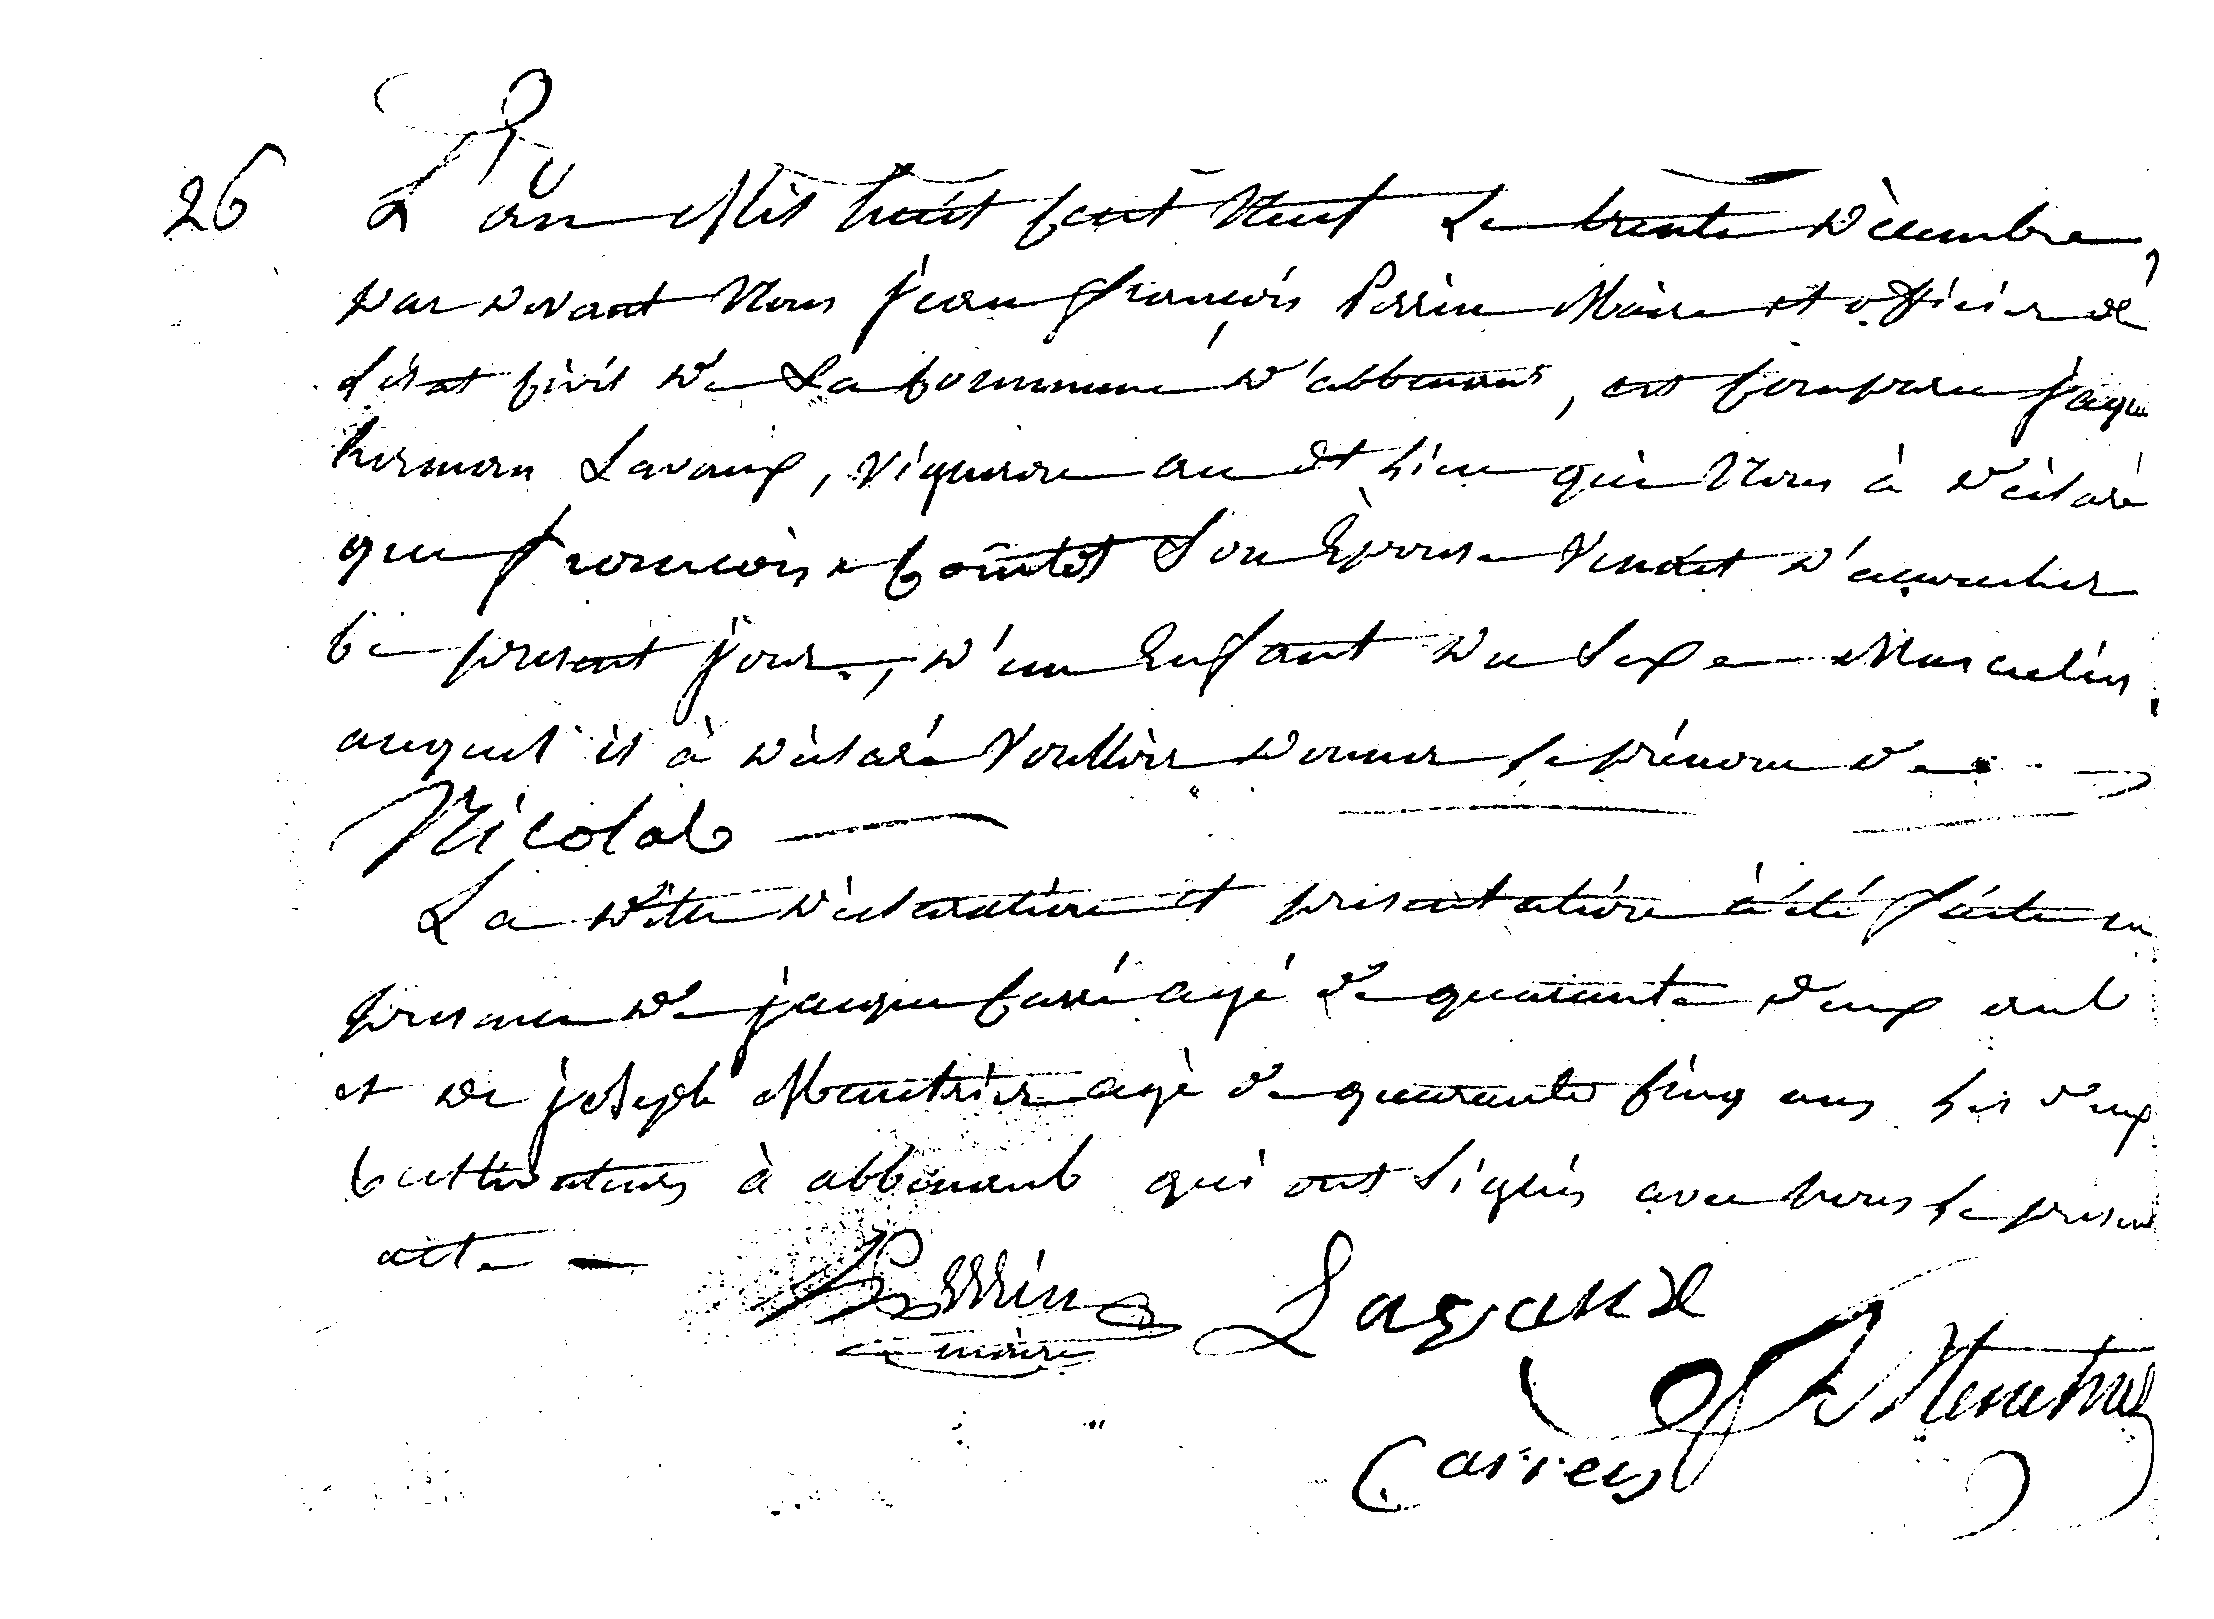 26
L'an Mil huit Cent Neuf Le trente Décembre,
par devant Nous jean françois Perrin Maire et officier de
l'état Civil de La Commune d'abbenans, est Comparu jaque
herman Lavaux, vigneron au dt Lieu qui Nous à déclaré
que françoise Son Epouse Vendit d'acoucher
Ce present jour, d'un Enfant du Sexe Masculin,
auquel il à déclaré Voulloir donner le prénom de
Nicolas
La ditte déclaration et presentation à été faitte en
presence de jaque Carré agé de quarante deux ans
et de joseph Menetrier agé de quarante Cinq ans les deux
Cultivateurs à abbenans qui ont Signés avec Nous le present
acte
Perrin Lagrande
maire
J Menetrié
Carrey